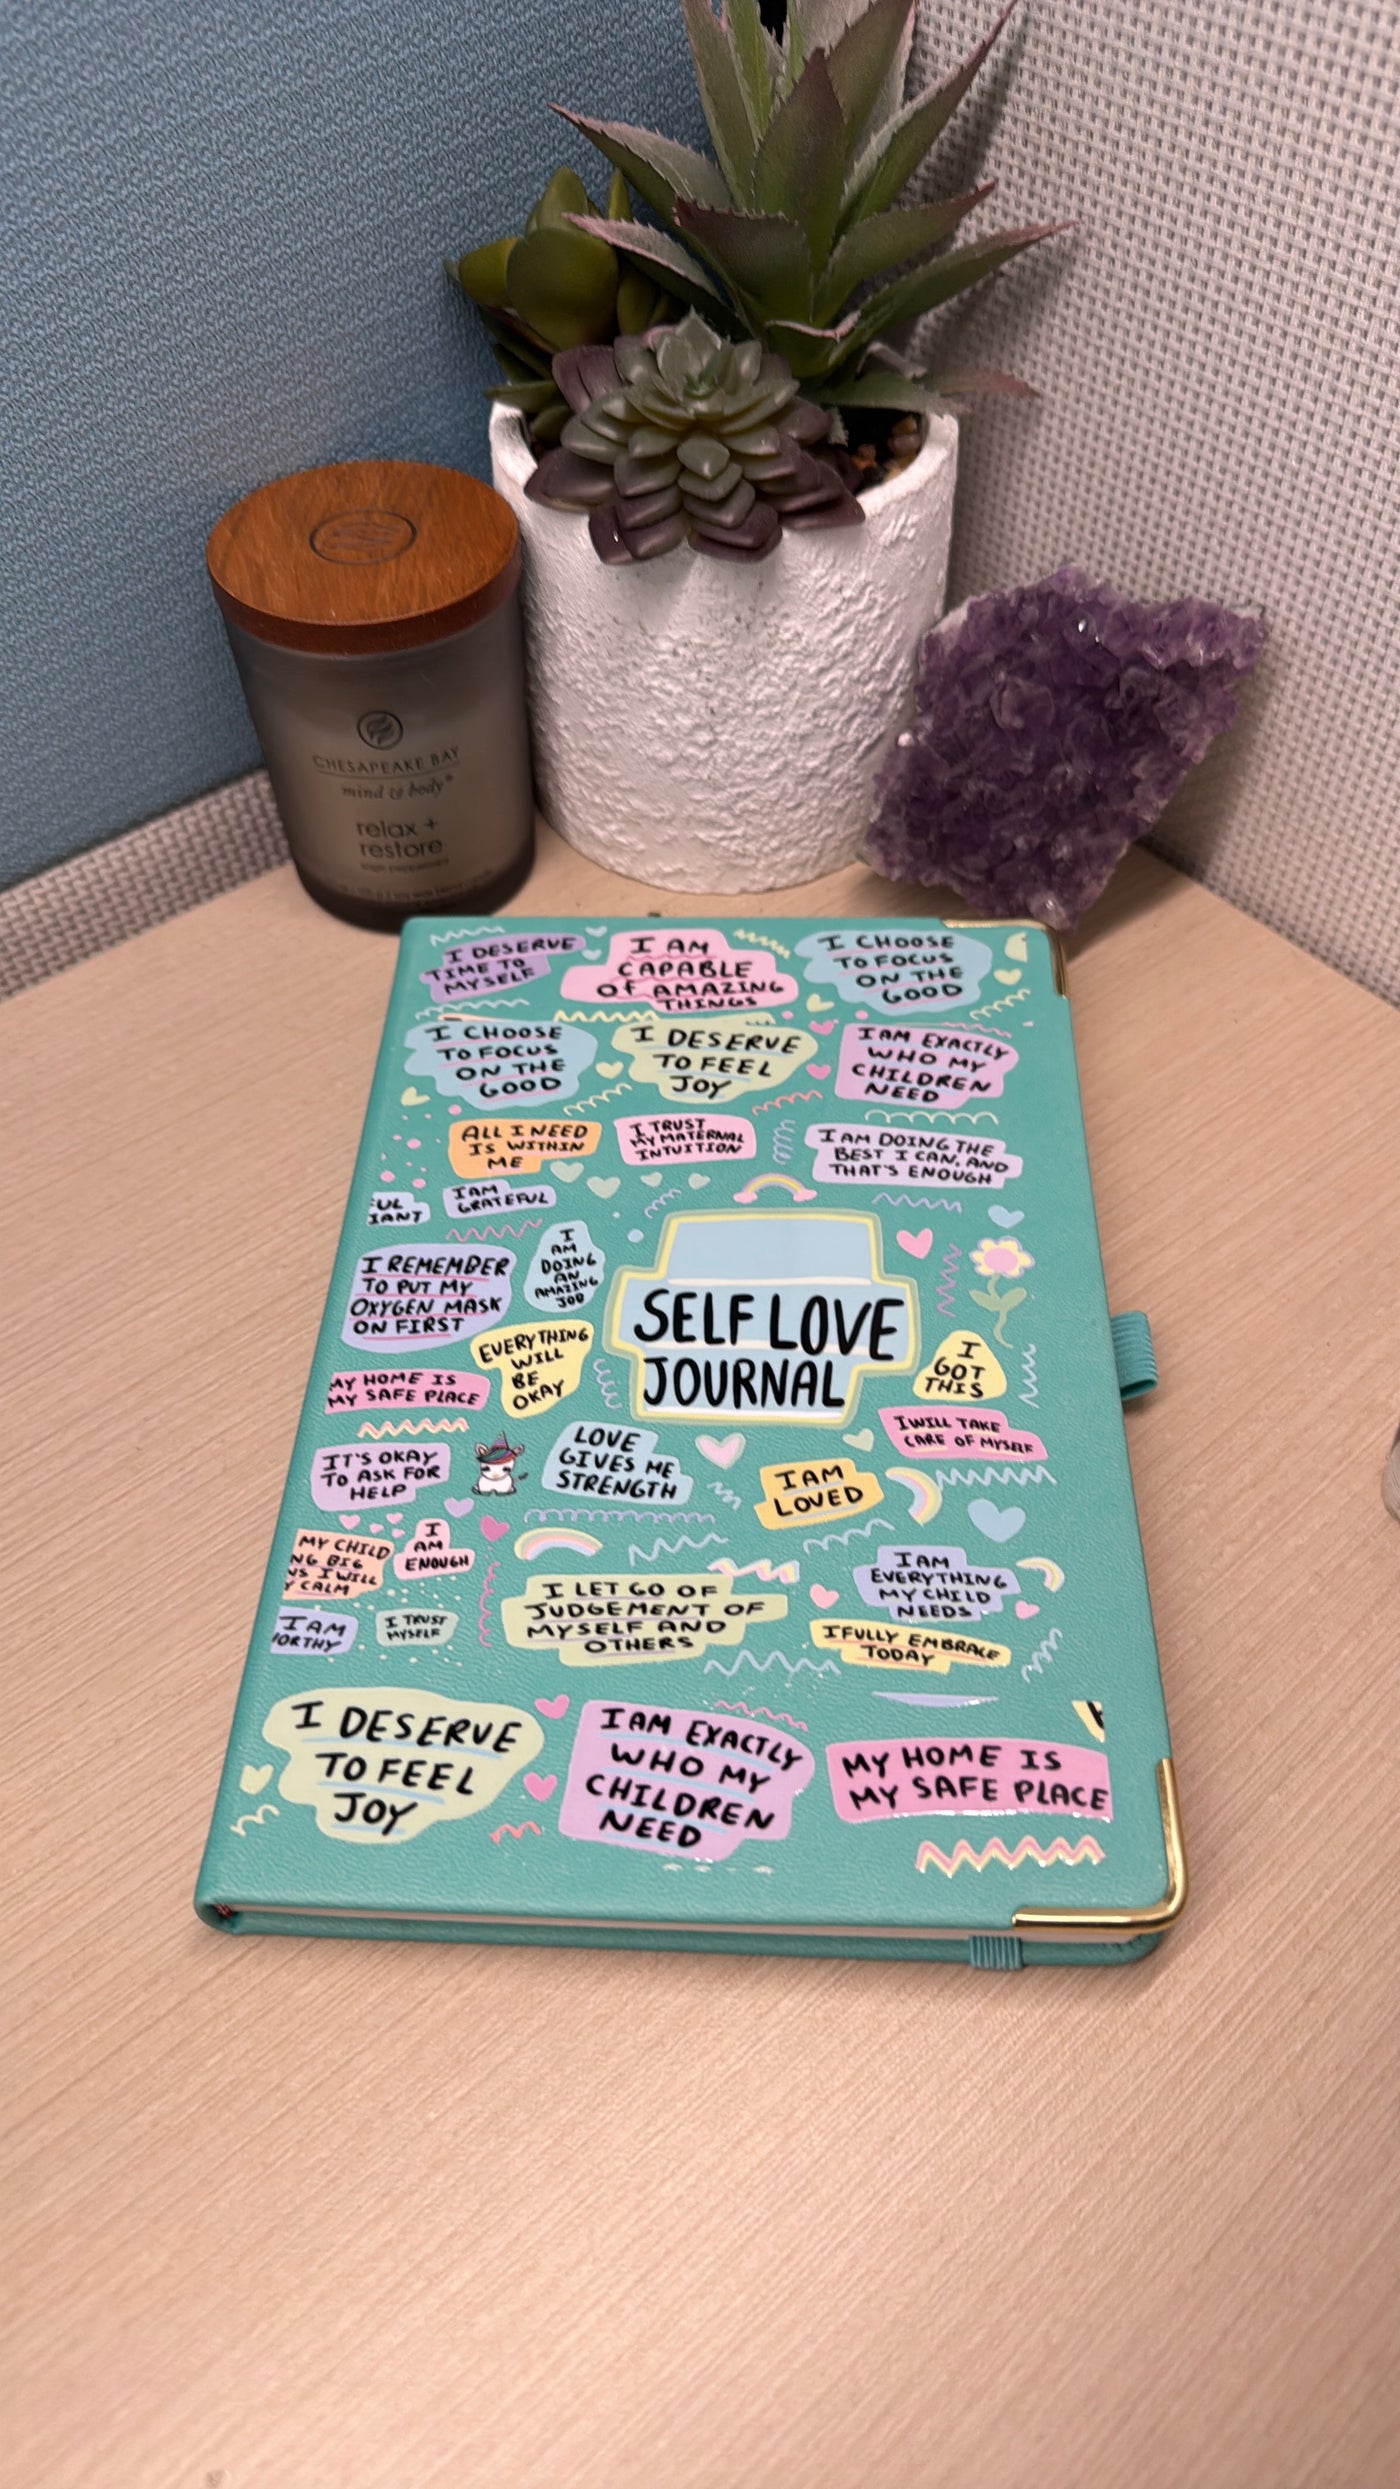 CHESAPEAKE BAY
mind & body®
relax +
restore
I DESERVE
TIME TO
MYSELF
I AM
CAPABLE
OF AMAZING
THINGS
I CHOOSE
TO FOCUS
ON THE
GOOD
I CHOOSE
TO FOCUS
ON THE
GOOD
I DESERVE
TO FEEL
JOY
I AM EXACTLY
WHO MY
CHILDREN
NEED
ALL I NEED
IS WITHIN
ME
I TRUST
MY MATERNAL
INTUITION
I AM DOING THE
BEST I CAN, AND
THAT'S ENOUGH
UL
IANT
I AM
GRATEFUL
I REMEMBER
TO PUT MY
OXYGEN MASK
ON FIRST
I
AM
DOING
AN
AMAZING
JOB
SELF LOVE
JOURNAL
EVERYTHING
WILL
BE
OKAY
I
GOT
THIS
MY HOME IS
MY SAFE PLACE
I WILL TAKE
CARE OF MYSELF
IT'S OKAY
TO ASK FOR
HELP
LOVE
GIVES ME
STRENGTH
I AM
LOVED
MY CHILD
NG BIG
NS I WILL
Y CALM
I
AM
ENOUGH
I AM
EVERYTHING
MY CHILD
NEEDS
I LET GO OF
JUDGEMENT OF
MYSELF AND
OTHERS
I AM
ORTHY
I TRUST
MYSELF
I FULLY EMBRACE
TODAY
I DESERVE
TO FEEL
JOY
I AM EXACTLY
WHO MY
CHILDREN
NEED
MY HOME IS
MY SAFE PLACE